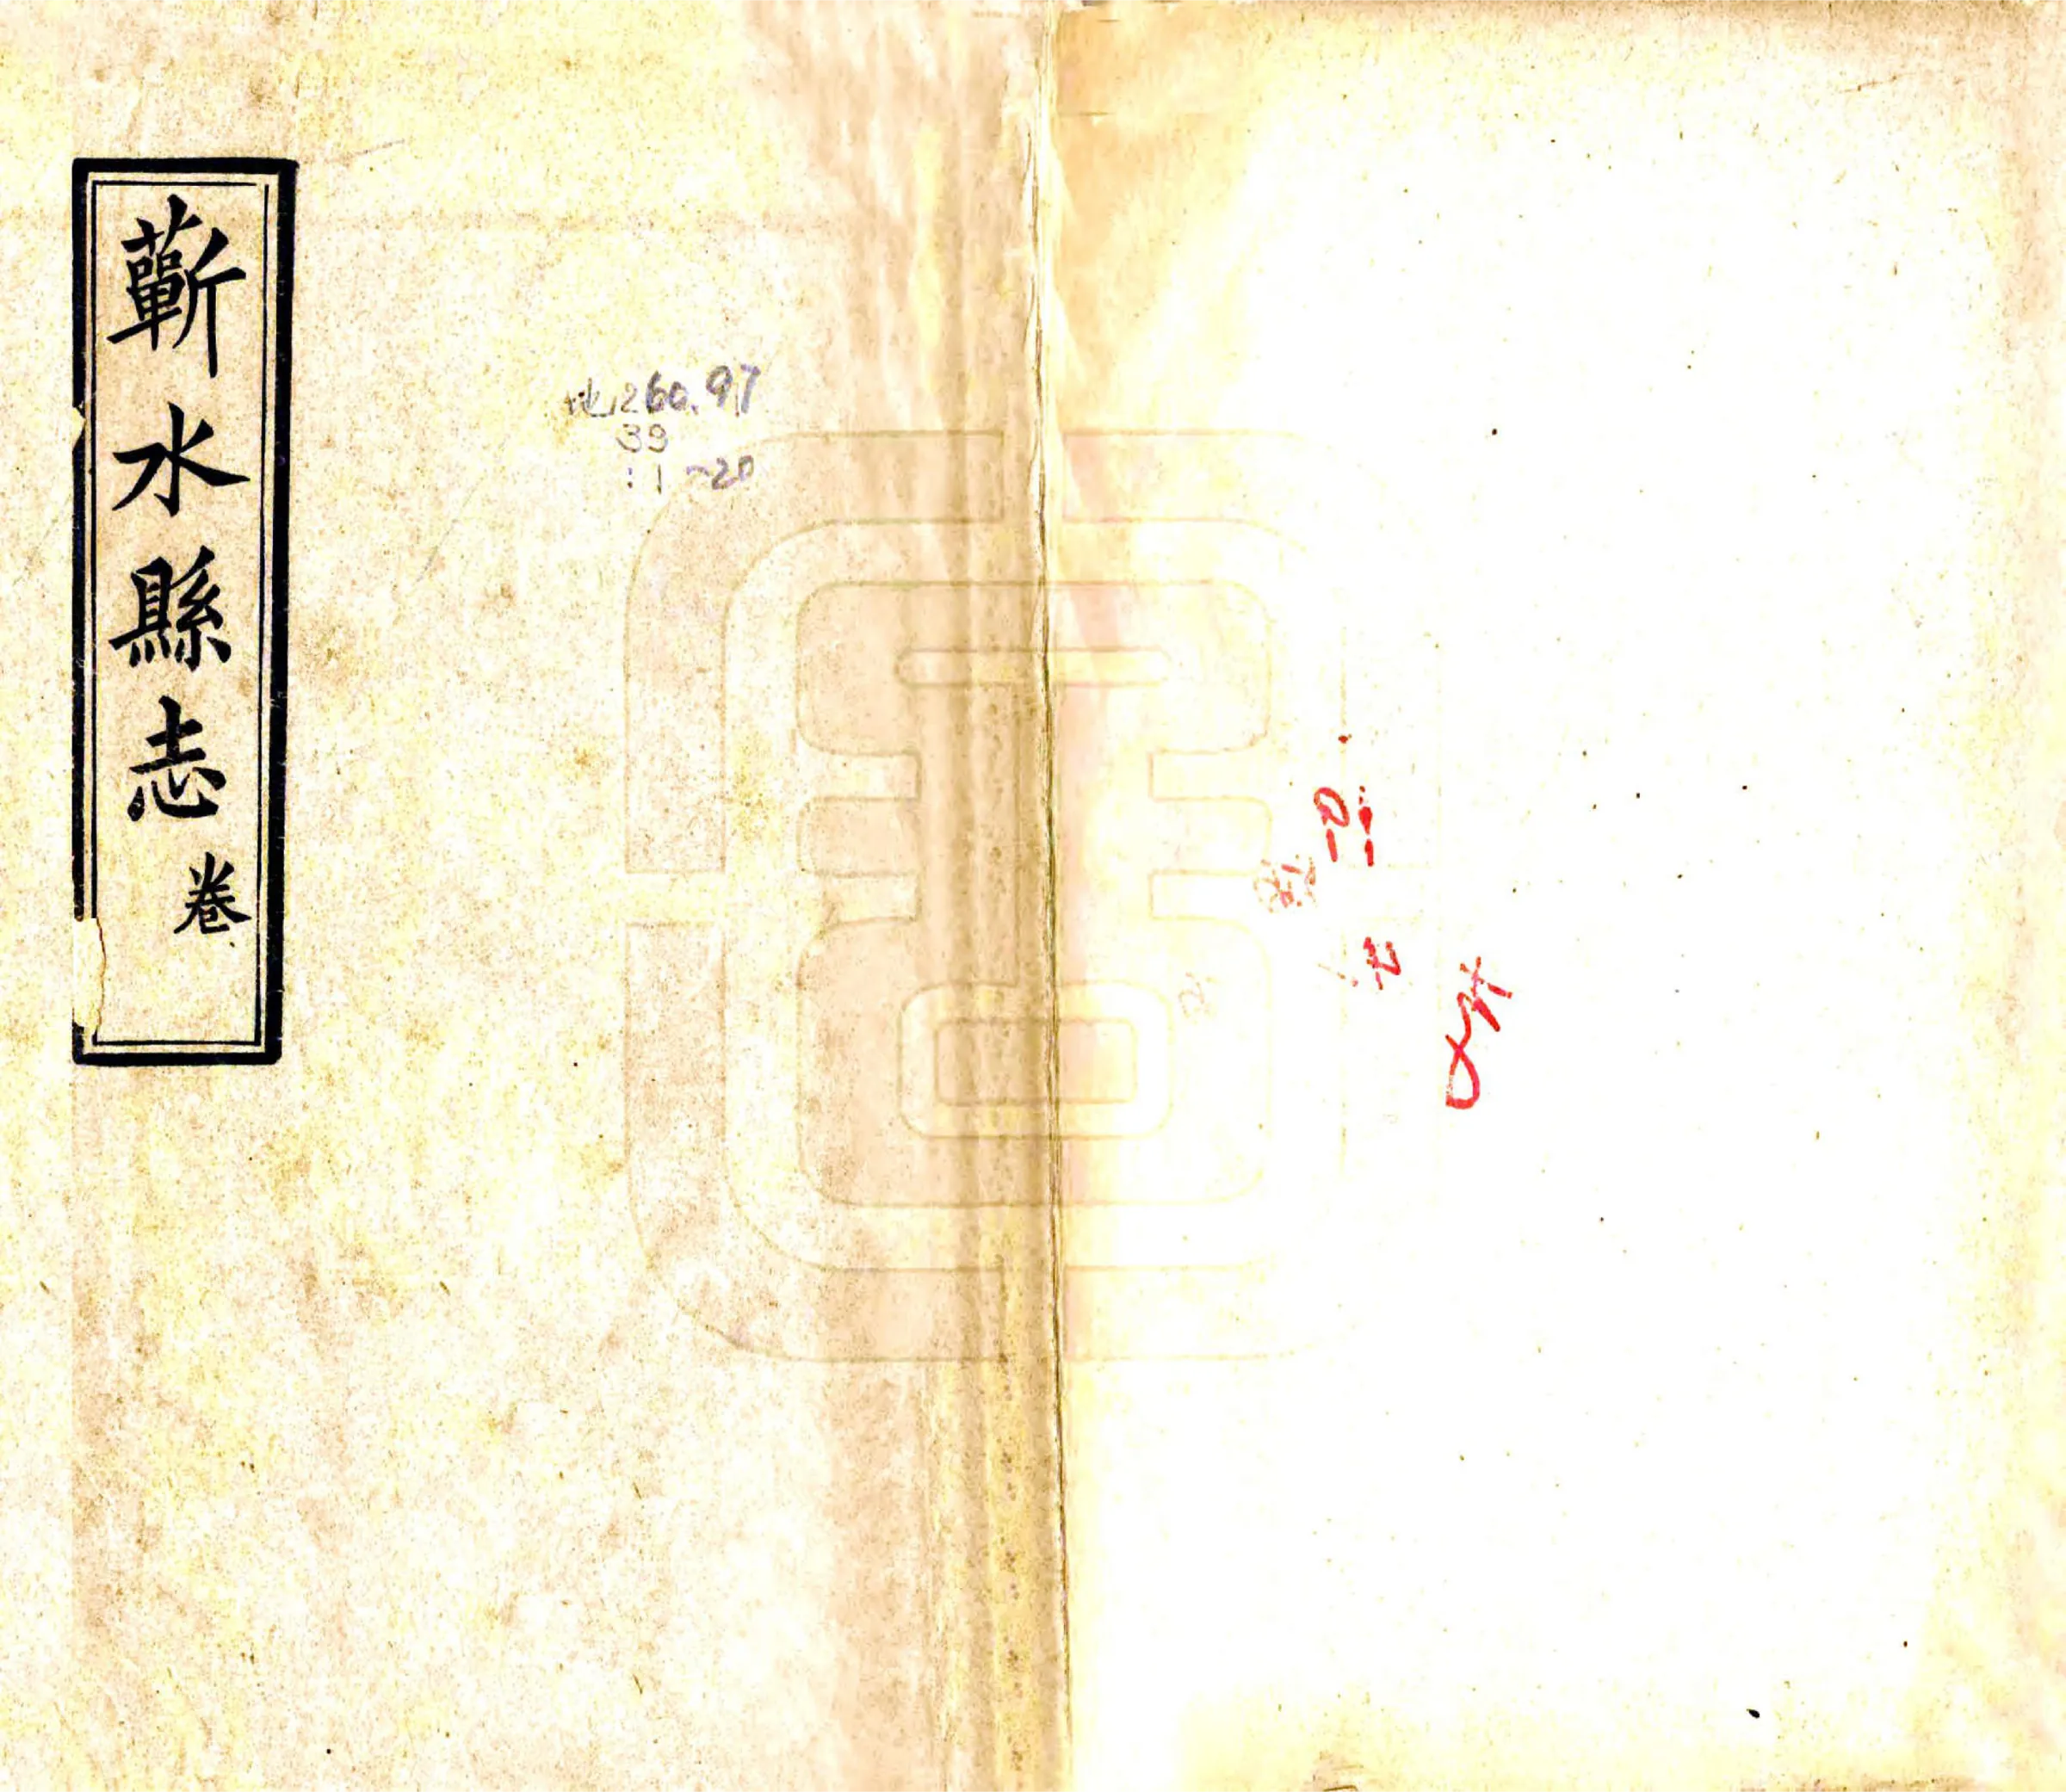 蘄水縣志 卷
地260.97
39
:1~20